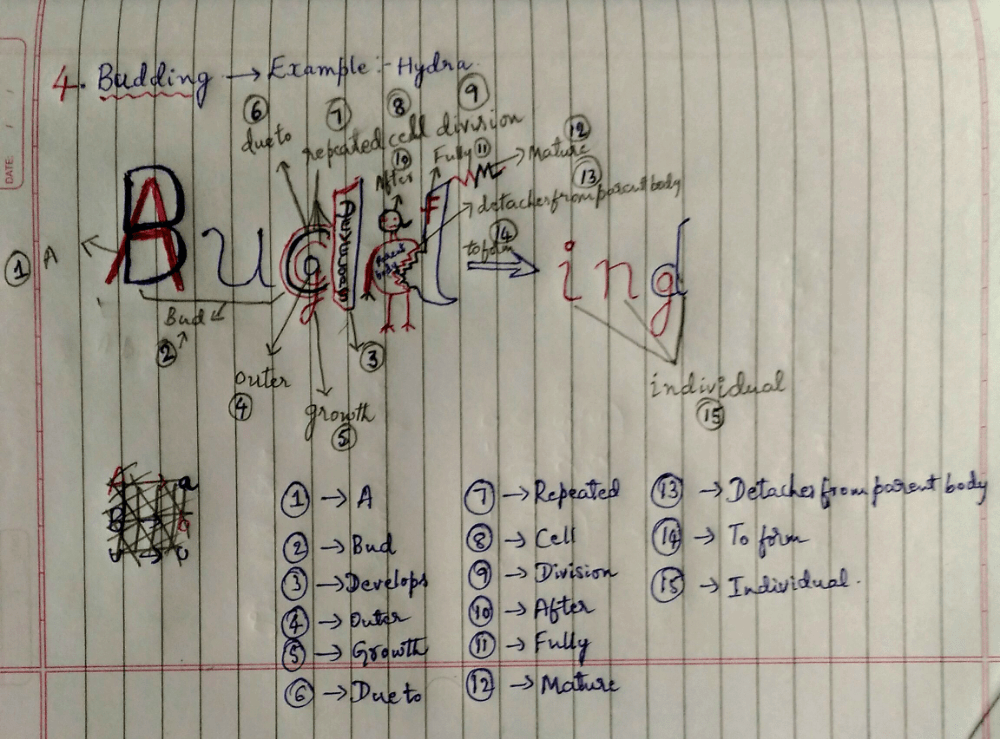 DATE:
4. Budding → Example :- Hydra
⑥ ⑦ ⑧ ⑨
due to repeated cell division
⑩ After
Fully ⑪
Mature ⑫
⑬ detaches from parent body
⑭ to form
① A
Budding
parent body
Bud
②
③
outer
④
growth
⑤
individual
⑮
① → A
② → Bud
③ → Develops
④ → Outer
⑤ → Growth
⑥ → Due to
⑦ → Repeated
⑧ → Cell
⑨ → Division
⑩ → After
⑪ → Fully
⑫ → Mature
⑬ → Detaches from parent body
⑭ → To form
⑮ → Individual.